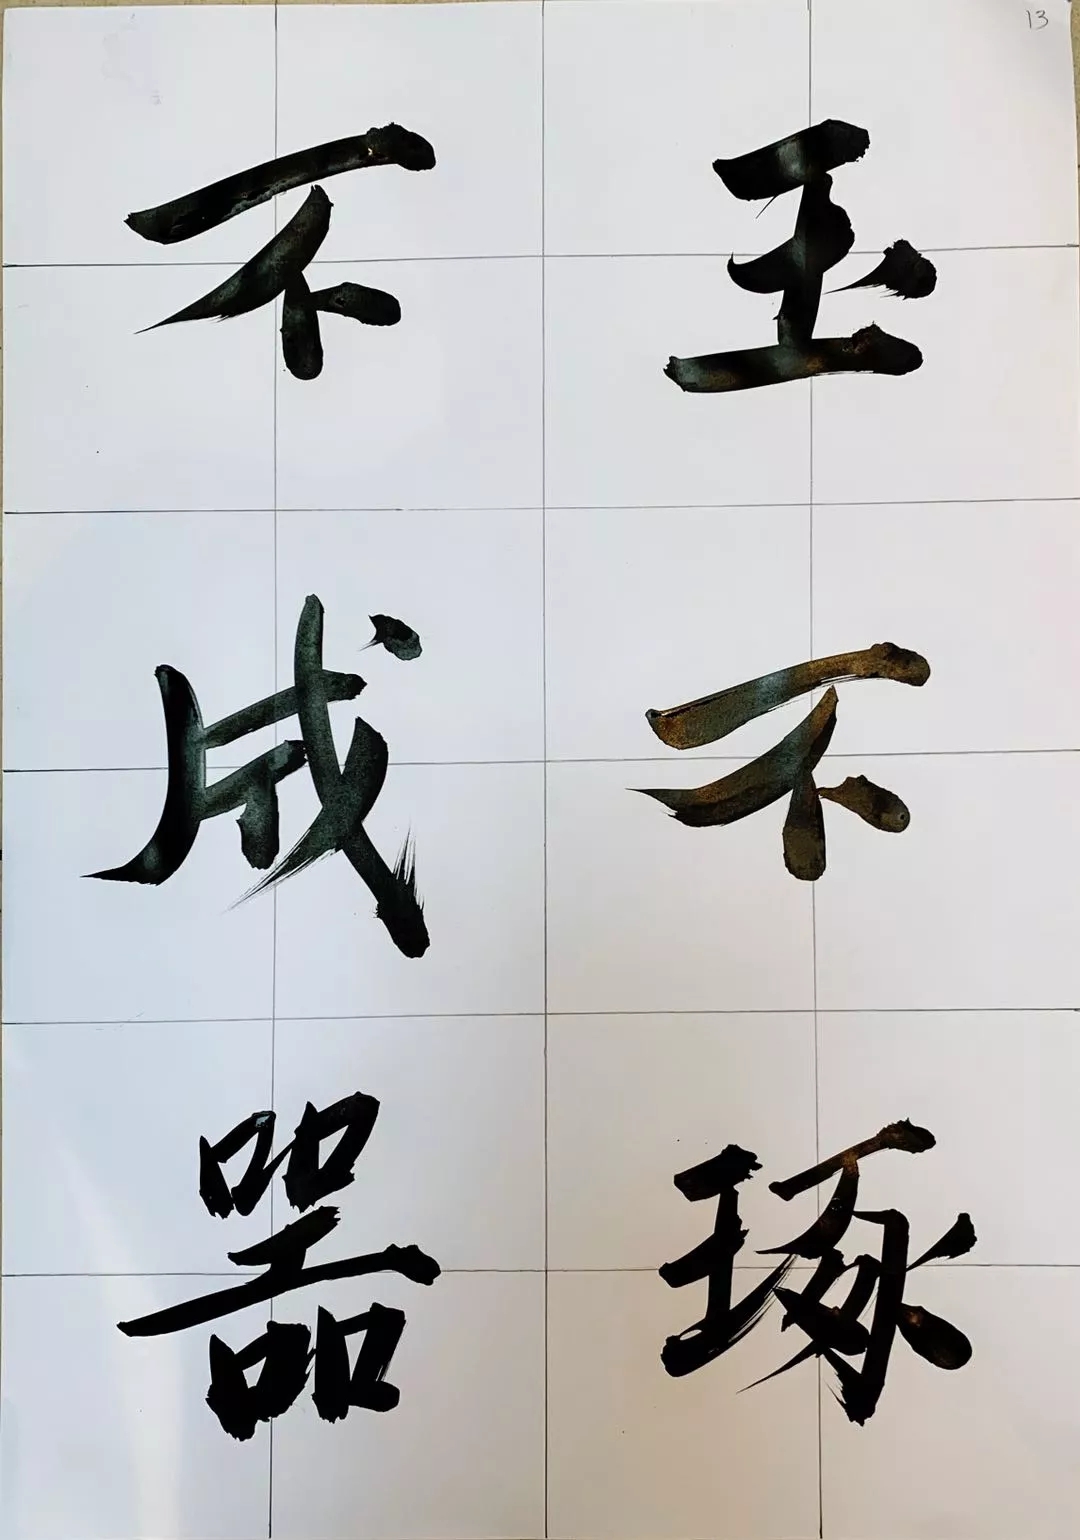 13
玉不琢
不成器